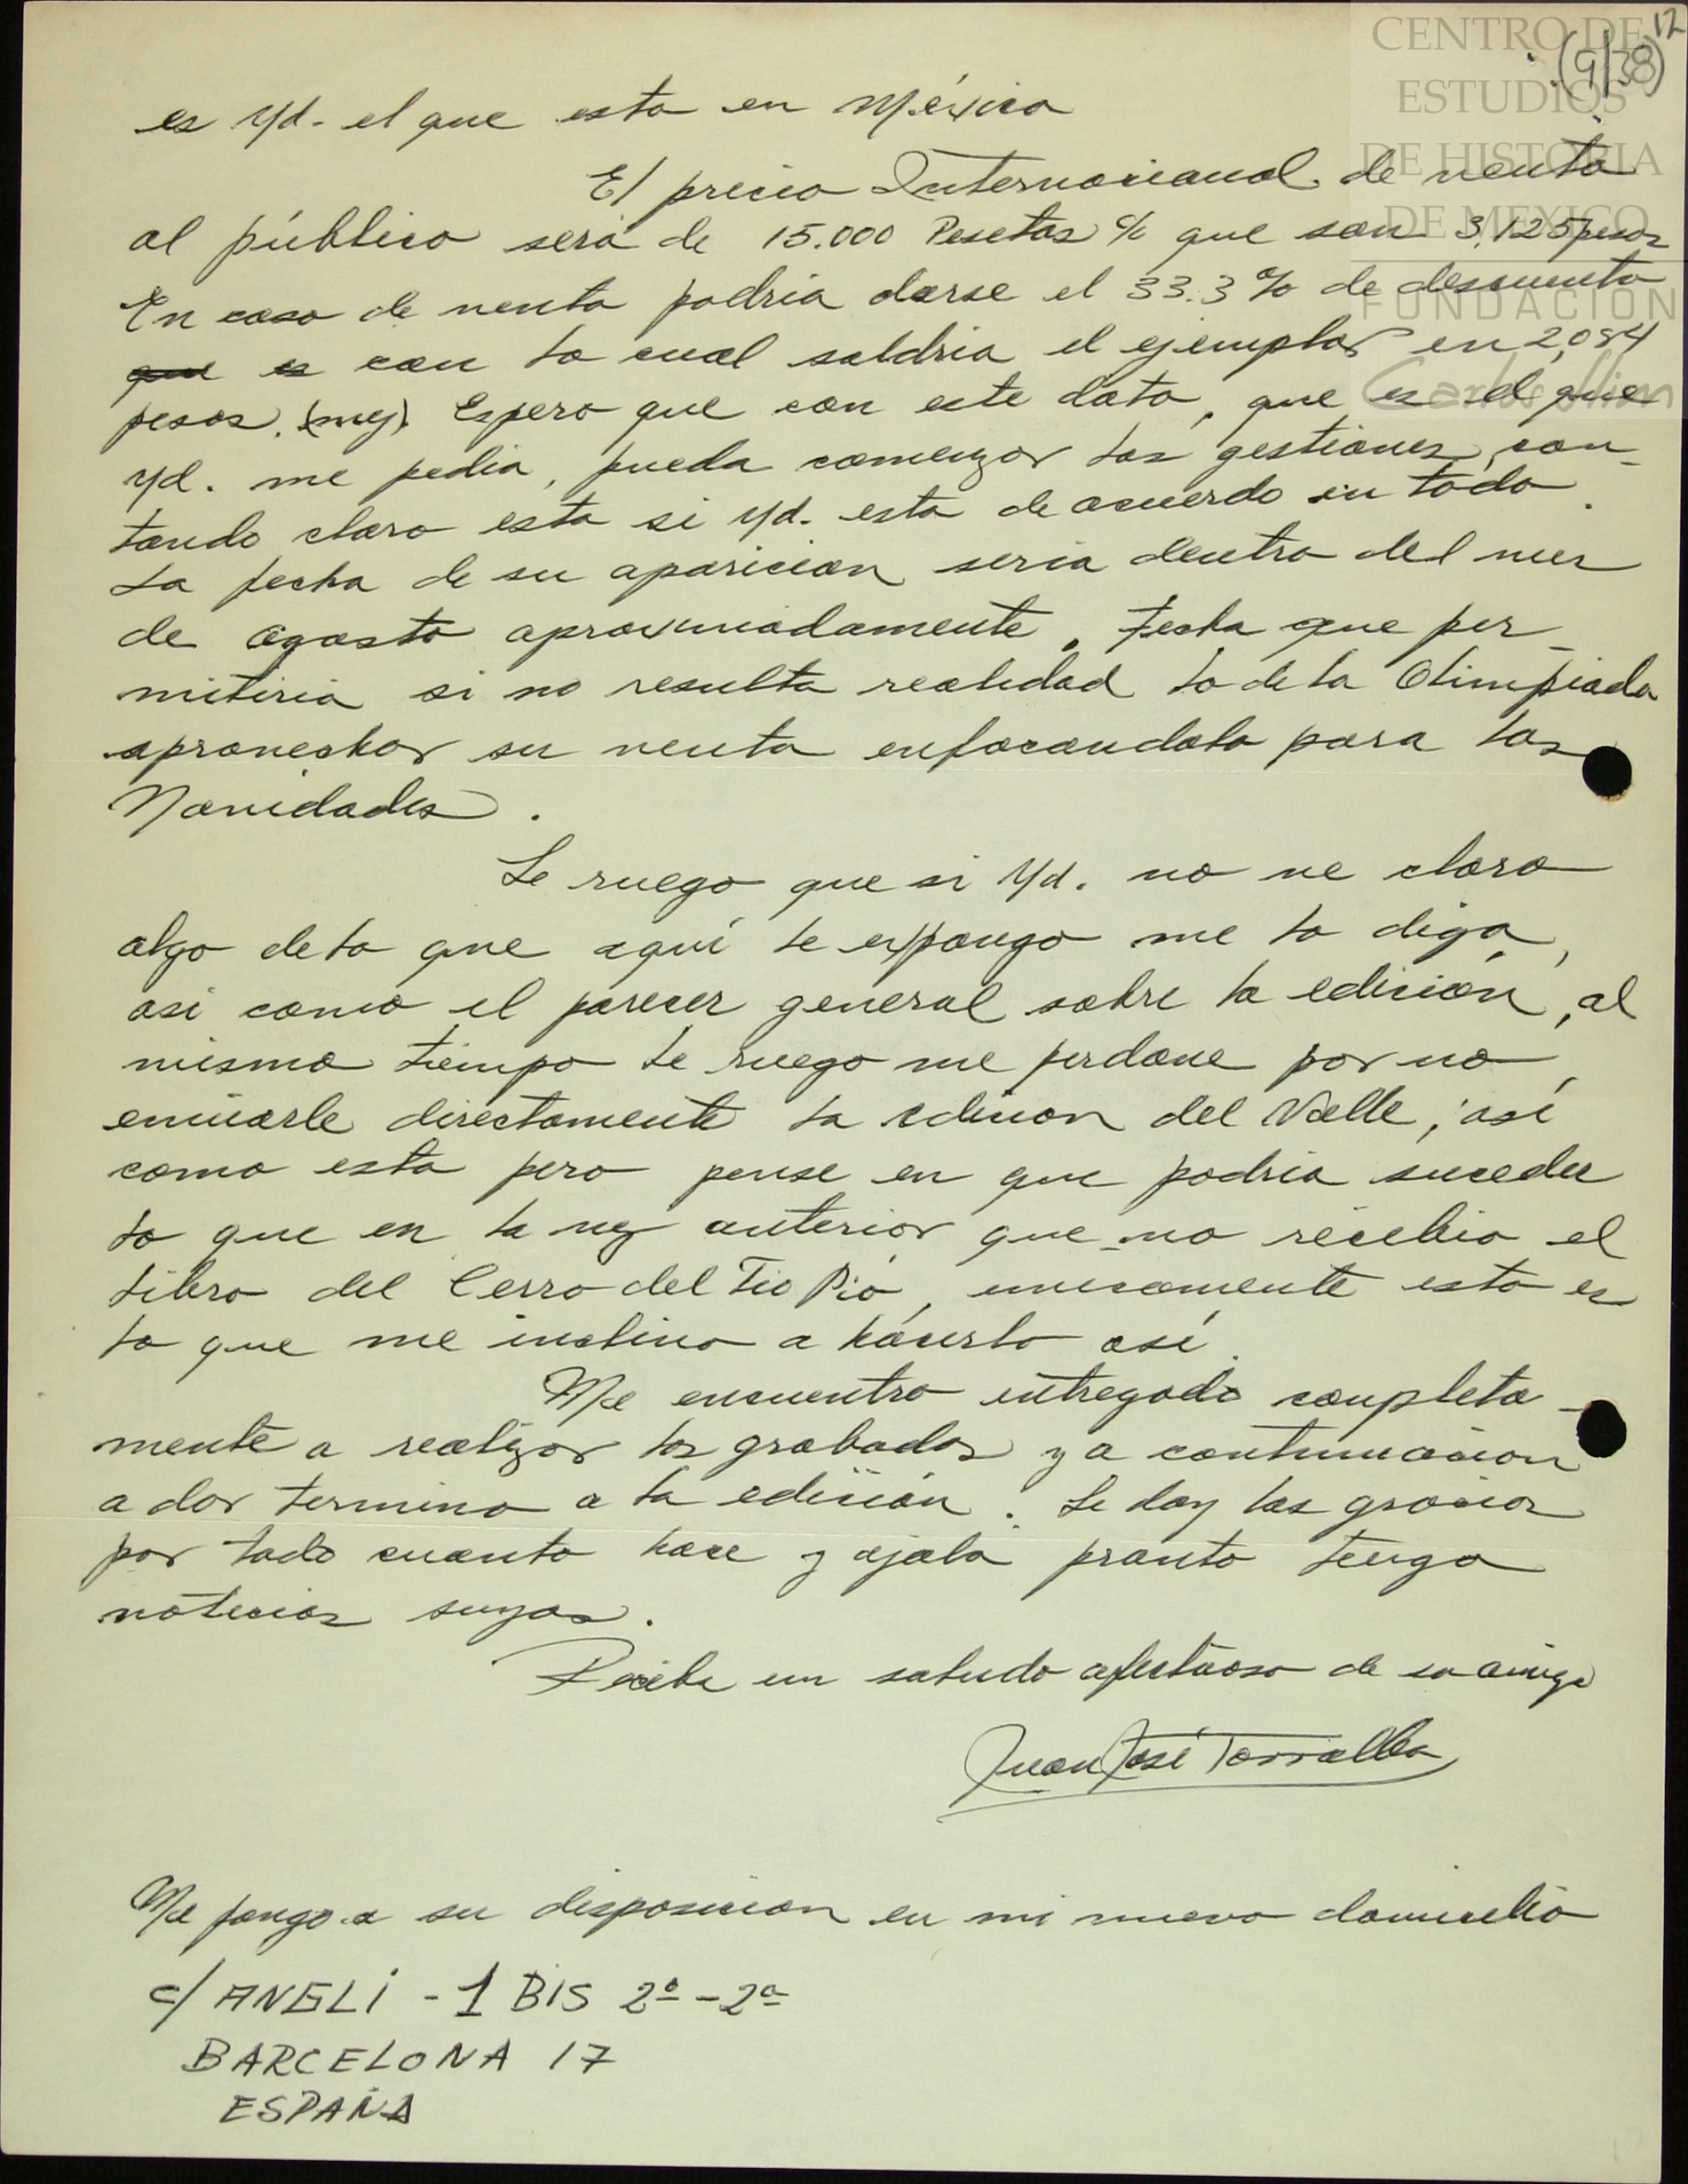 12
(9/38)
CENTRO DE
ESTUDIOS
DE HISTORIA
DE MEXICO
FUNDACIÓN
Carlos Slim
es Vd. el que esta en México
El precio Internacional de venta
al público será de 15.000 Pesetas % que son 3,125 pesos
En caso de venta podria darse el 33.3 % de descuento
que es con lo cual saldria el ejemplar en 2,084
pesos. (mej). Espero que con este dato, que es el que
Vd. me pedia, pueda comenzar las gestiones, con-
tando claro esta si Vd. esta de acuerdo en todo.
La fecha de su aparicion seria dentro del mes
de Agosto aproximadamente. Fecha que per-
mitiria si no resulta realidad lo de la Olimpiada
aprovechar su venta enfocandola para las
Navidades.
Le ruego que si Vd. no ve claro
algo de lo que aquí le expongo me lo diga,
asi como el parecer general sobre la edición, al
mismo tiempo le ruego me perdone por no
enviarle directamente la edicion del Valle, así
como esta pero pense en que podria suceder
lo que en la vez anterior que no recibio el
libro del Cerro del Tio Pio, unicamente esto es
lo que me inclino a hacerlo asi.
Me encuentro entregado completa-
mente a realizar los grabados y a continuacion
a dar termino a la edición. Le doy las gracias
por todo cuanto hace y ojala pronto tenga
noticias suyas.
Reciba un saludo afectuoso de su amigo
Juan José Torralba
Me pongo a su disposicion en mi nuevo domicilio
c/ ANGLI - 1 BIS 2º - 2ª
BARCELONA 17
ESPAÑA